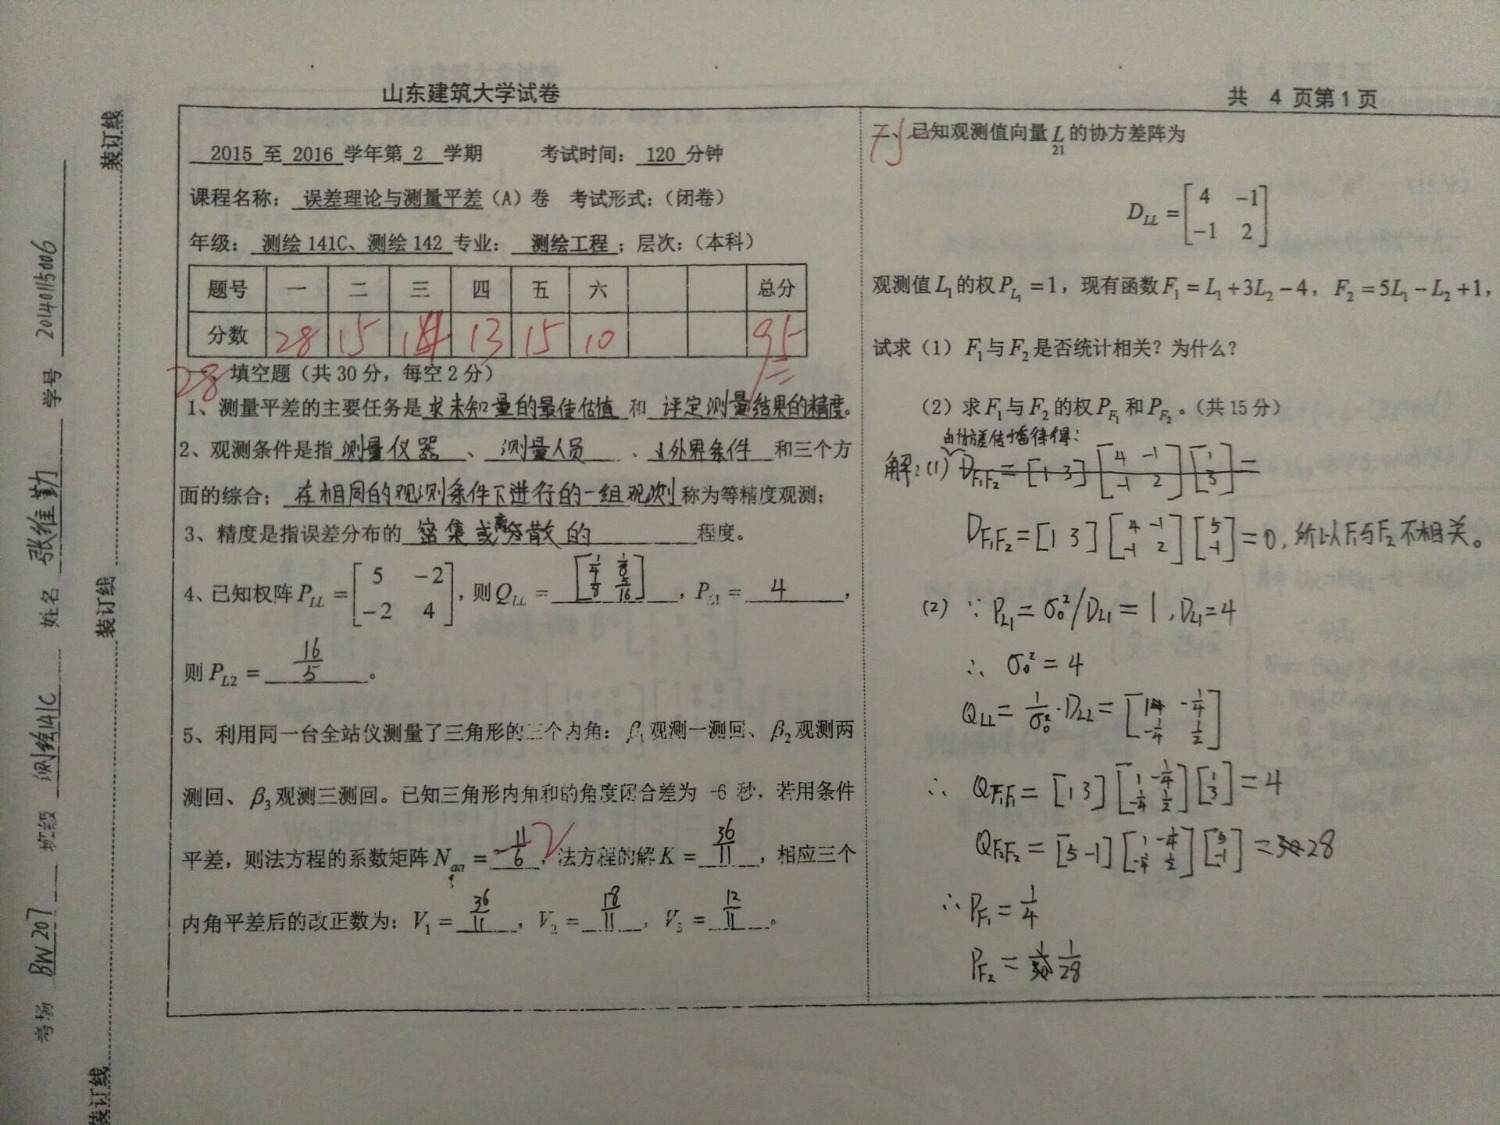 山东建筑大学试卷
共 4 页第 1 页
装订线
装订线
装订线
考场 BW207 班级 测绘141C 姓名 张维勤 学号 20140115006
2015 至 2016 学年第 2 学期 考试时间: 120 分钟
课程名称: 误差理论与测量平差 (A) 卷 考试形式: (闭卷)
年级: 测绘 141C、测绘 142 专业: 测绘工程 ; 层次: (本科)
题号 一 二 三 四 五 六 总分
分数 28 15 14 13 15 10 95
28 一 填空题 (共 30 分, 每空 2 分)
1、测量平差的主要任务是 求未知量的最佳估值 和 评定测量结果的精度。
2、观测条件是指 测量仪器 、 测量人员 、 外界条件 和三个方
面的综合; 在相同的观测条件下进行的一组观测 称为等精度观测;
3、精度是指误差分布的 密集或离散的 程度。
4、已知权阵 P_LL = [5 -2; -2 4], 则 Q_LL = [1/4 1/8; 1/8 5/16], P_L1 = 4 ,
则 P_L2 = 16/5 。
5、利用同一台全站仪测量了三角形的三个内角: β1 观测一测回、β2 观测两
测回、β3 观测三测回。已知三角形内角和的角度闭合差为 -6 秒, 若用条件
平差, 则法方程的系数矩阵 N_aa = -11/6 , 法方程的解 K = 36/11 , 相应三个
内角平差后的改正数为: V1 = 36/11 , V2 = 18/11 , V3 = 12/11 。
15 二、已知观测值向量 L 21 的协方差阵为
D_LL = [4 -1; -1 2]
观测值 L1 的权 P_L1 = 1, 现有函数 F1 = L1 + 3L2 - 4, F2 = 5L1 - L2 + 1,
试求 (1) F1 与 F2 是否统计相关? 为什么?
(2) 求 F1 与 F2 的权 P_F1 和 P_F2。(共 15 分)
由协方差传播律得:
解: (1) D_F1F2 = [1 3] [4 -1; -1 2] [1; 3] =
D_F1F2 = [1 3] [4 -1; -1 2] [5; -1] = 0, 所以 F1 与 F2 不相关。
(2) ∵ P_L1 = σ0²/D_L1 = 1, D_L1 = 4
∴ σ0² = 4
Q_LL = 1/σ0² · D_LL = [1 -1/4; -1/4 1/2]
∴ Q_F1F1 = [1 3] [1 -1/4; -1/4 1/2] [1; 3] = 4
Q_F2F2 = [5 -1] [1 -1/4; -1/4 1/2] [5; -1] = 28
∴ P_F1 = 1/4
P_F2 = 1/28